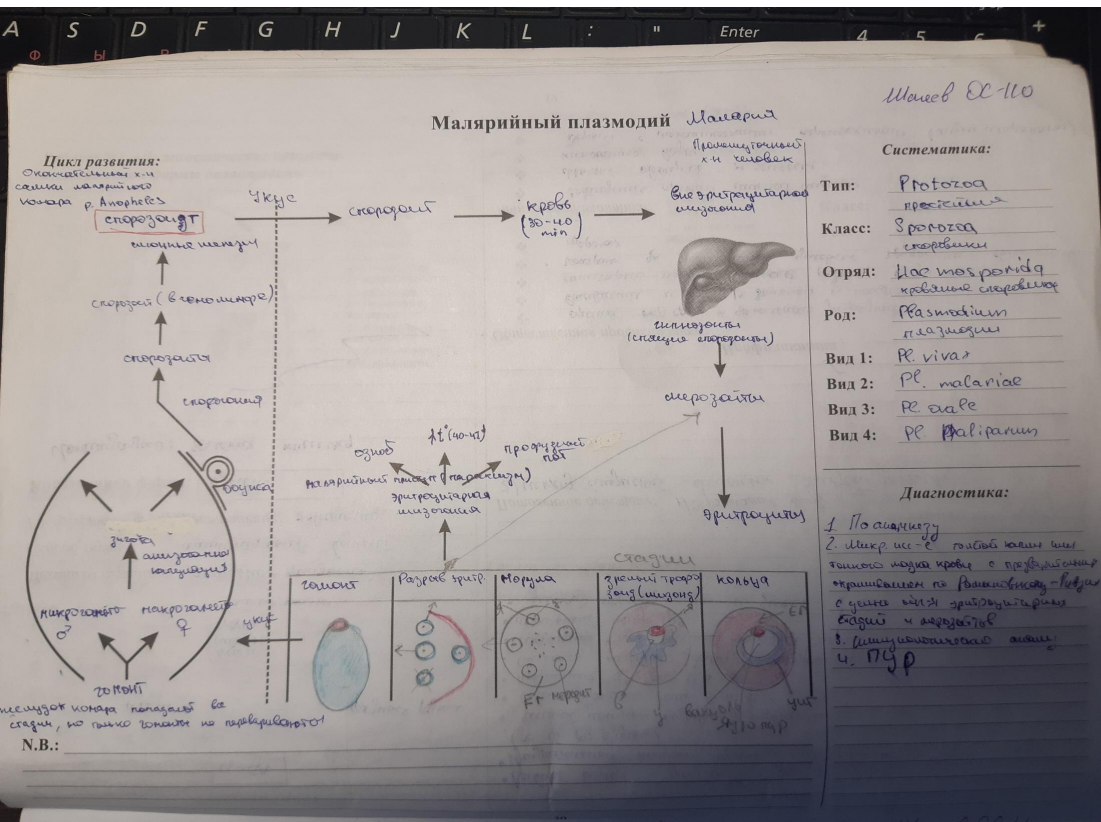 A S D F G H J K L : " Enter 4 5 6 +
Ф Ы В
ОС-110
Малярийный плазмодий Малярия
Цикл развития:
Окончательный х-н
самки малярийного
комара р. Anopheles
спорозоидт
слюнные железы
спорозоит (в гемолимфе)
спорозоиты
спорогония
ооциста
зигота
микрогамето
♂
макрогамето
♀
гомонт
желудок комара попадают все
стадии, но только гомонты не перевариваются!
укус
спорозоит
кровь
(30-40
min)
Промежуточный
х-н человек
внеэритроцитарная
шизогония
гипнозоиты
(спящие спорозоиты)
мерозоиты
эритроциты
озноб
t° (40-41°)
профузный
пот
малярийный приступ (пароксизм)
эритроцитарная
шизогония
укус
стадии
гомонт
Разрыв эритр.
Морула
зрелый трофо
зоид (шизонт)
кольца
Er мерозоит
в я
вакуоль
ядро пур
цит
Er
N.B.:
Систематика:
Тип: Protozoa
простейшие
Класс: Sporozoa
споровики
Отряд: Haemosporida
кровяные споровики
Род: Plasmodium
плазмодии
Вид 1: Pl. vivax
Вид 2: Pl. malariae
Вид 3: Pl. ovale
Вид 4: Pl. faliparum
Диагностика:
1. По анамнезу
2. Микр. исс-е толстой капли или
тонкого мазка крови с предварительным
окрашиванием по Романовскому-Гимзе
с целью эритроцитарных
стадий и мерозоитов
3. Иммунологическая
4. ПЦР